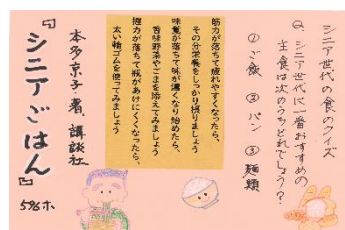 シニア世代の食のクイズ
Q、シニア世代に一番おすすめの
主食は次のうちどれでしょう？
①ご飯 ②パン ③麺類
筋力が落ちて疲れやすくなったら、
その分栄養をしっかり摂りましょう
味覚が落ちて味が濃くなり始めたら、
旨味野菜やごまを添えてみましょう
握力が落ちて瓶があけにくくなったら、
太い輪ゴムを使ってみましょう
本多京子・著 講談社
『シニアごはん』
596ホ